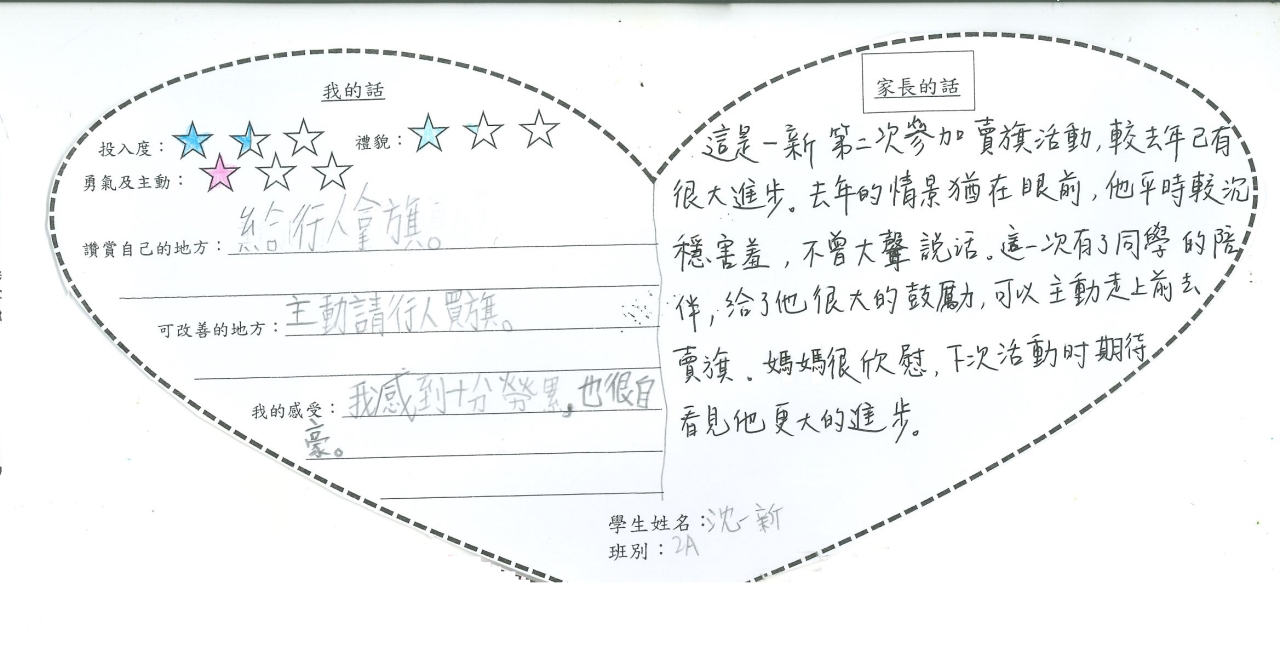 我的話
投入度：
禮貌：
勇氣及主動：
讚賞自己的地方：給行人拿旗。
可改善的地方：主動請行人買旗。
我的感受：我感到十分勞累，也很自
豪。
家長的話
這是一新第二次參加賣旗活動，較去年已有
很大進步。去年的情景猶在眼前，他平時較沉
穩害羞，不曾大聲說话。這一次有了同學的陪
伴，給了他很大的鼓勵，可以主動走上前去
賣旗。媽媽很欣慰，下次活動时期待
看見他更大的進步。
學生姓名：沈一新
班別：2A